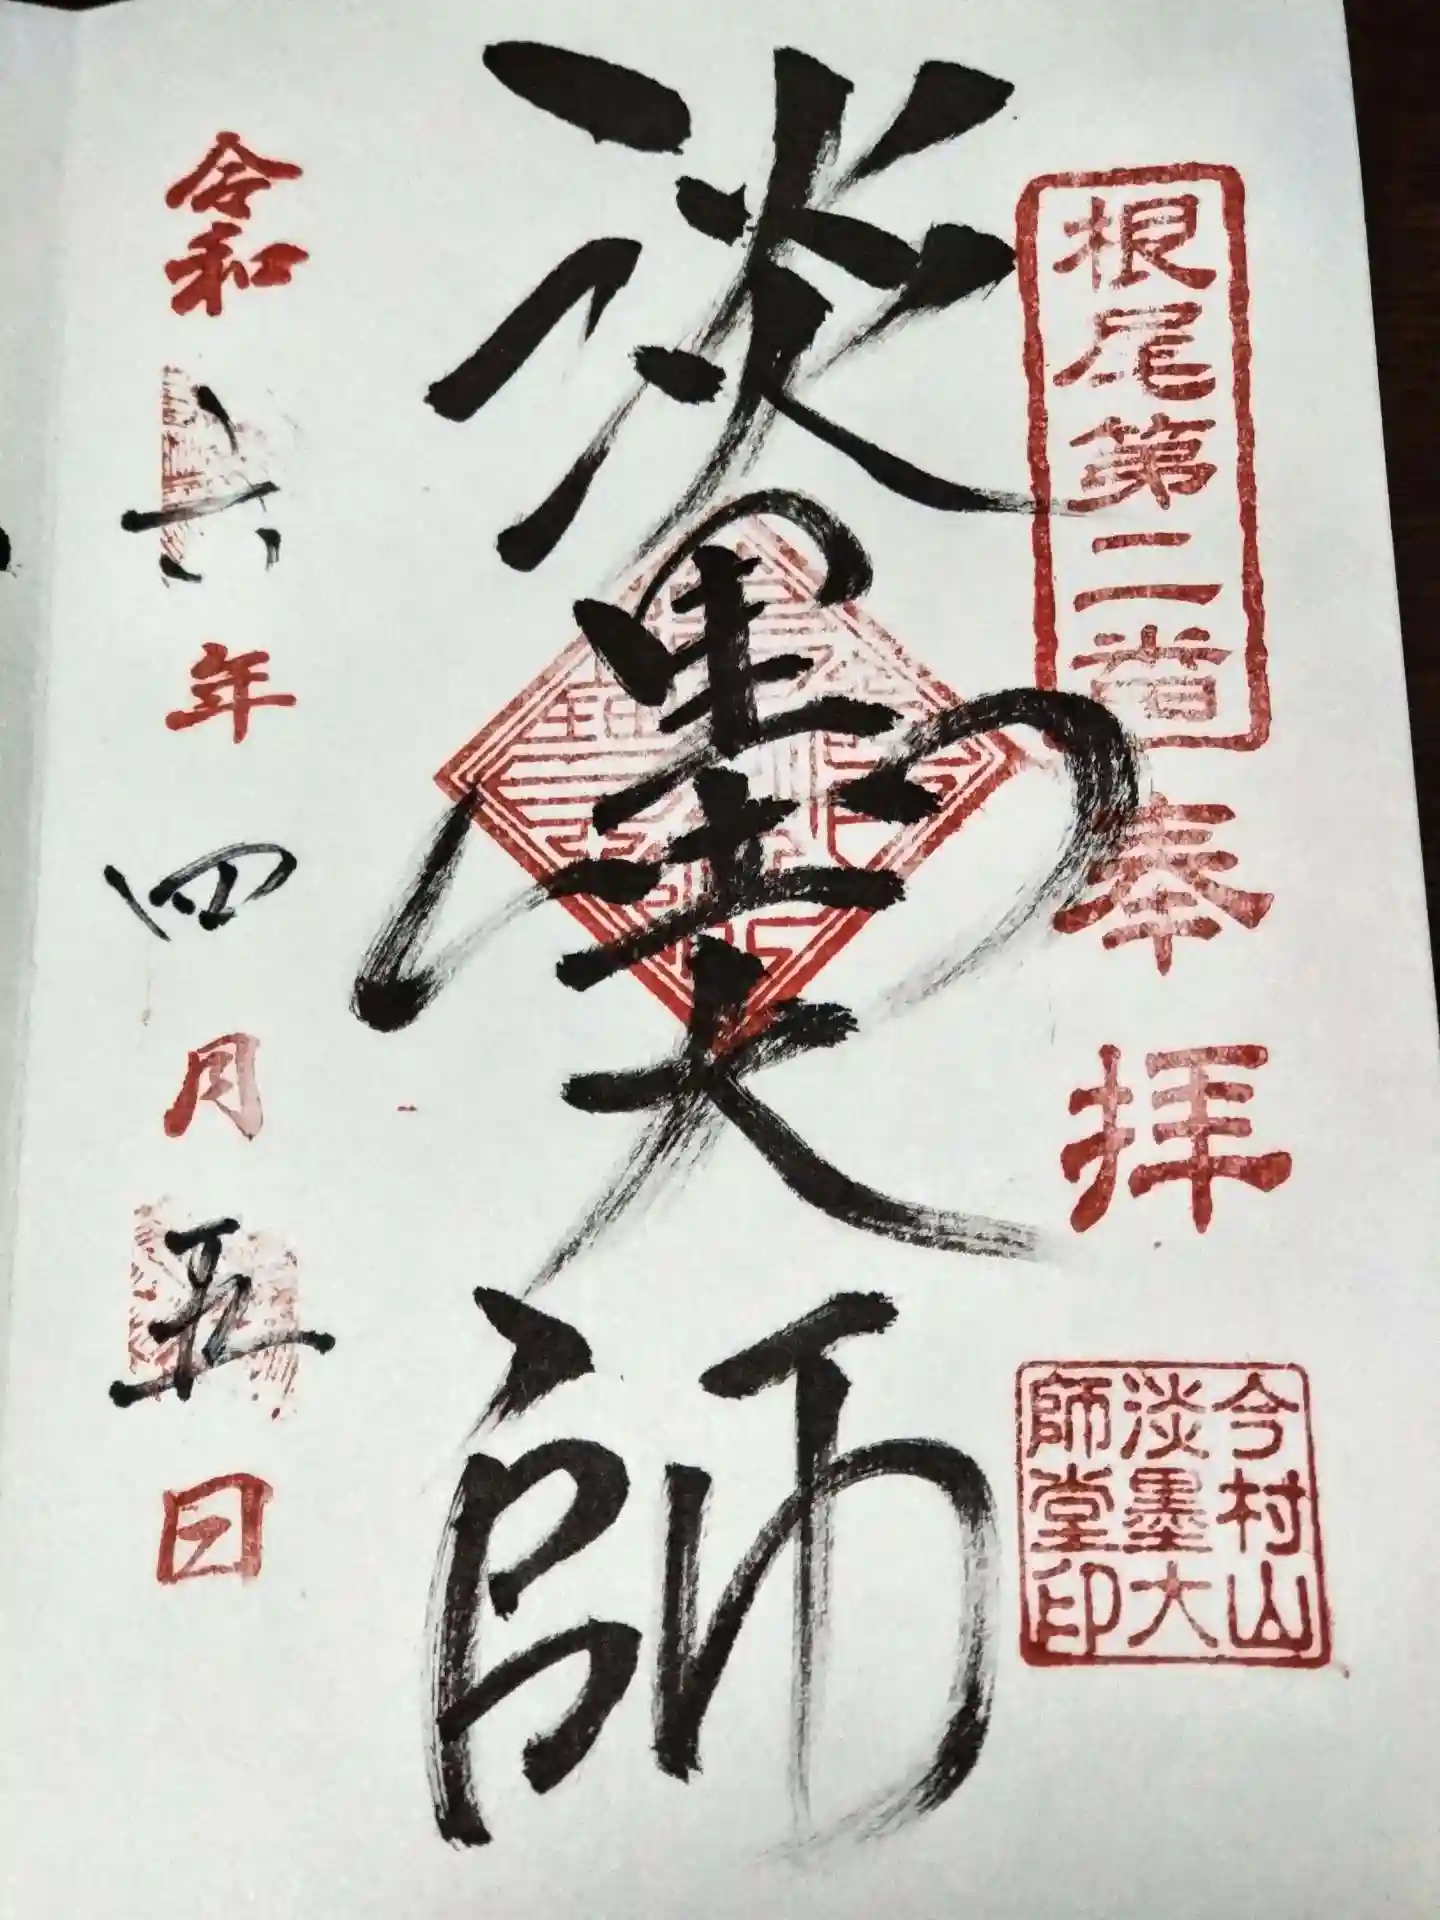 根尾第二番
奉拝
今村山
淡墨大
師堂印
淡墨大師
令和六年四月五日